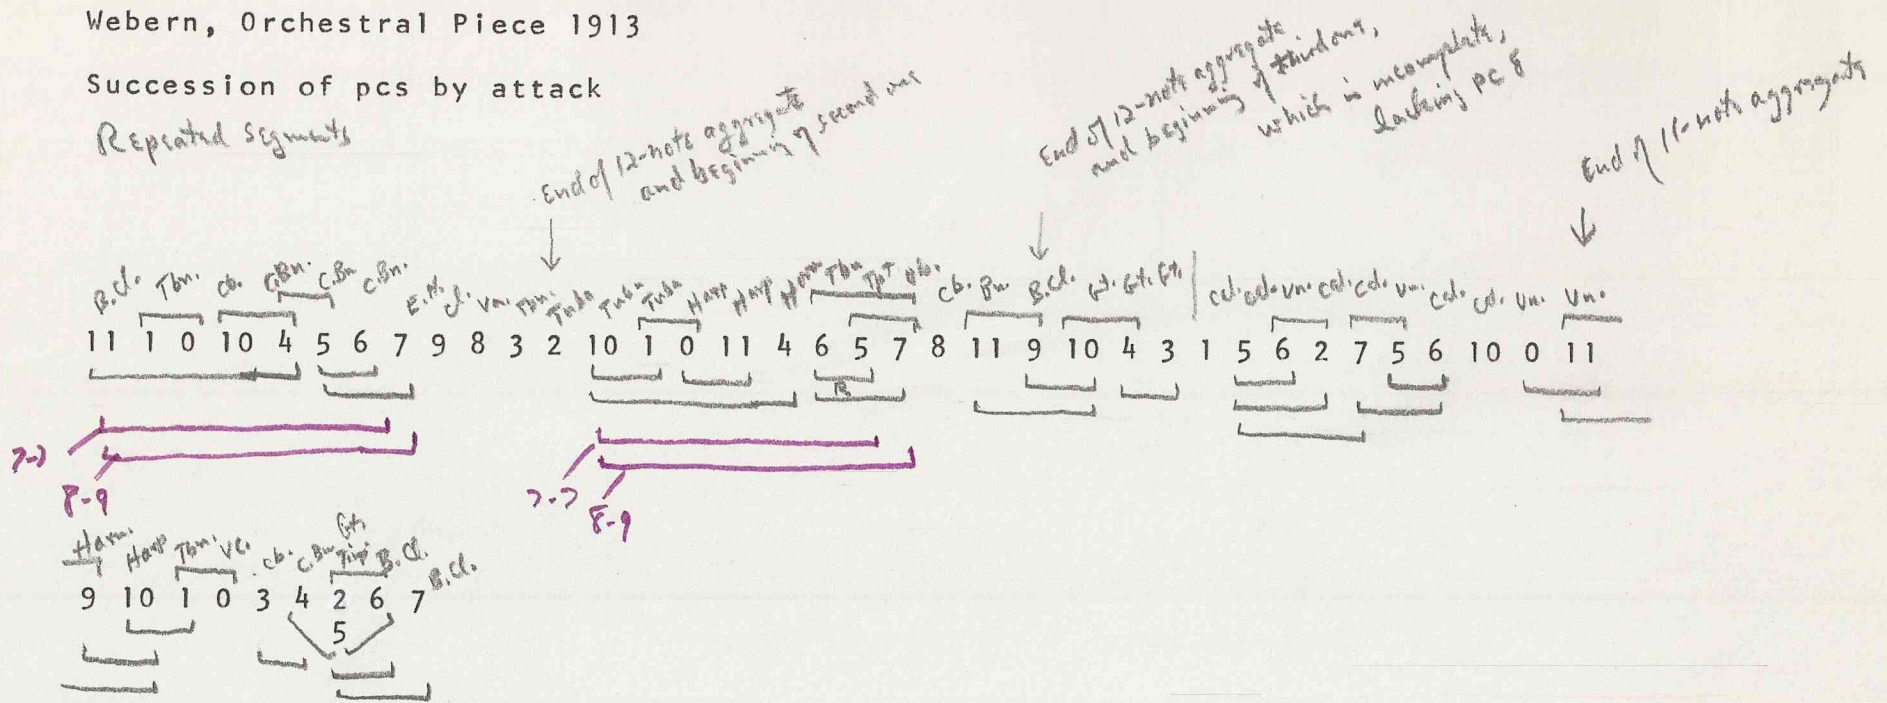 Webern, Orchestral Piece 1913
Succession of pcs by attack
Repeated segments
End of 12-note aggregate
and beginning of second one
End of 12-note aggregate
and beginning of third one,
which is incomplete,
lacking pc 8
End of 11-note aggregate
B.Cl. Tbn. Cb. C.Bn. C.Bn. C.Bn. E.H. Cl. Va. Tbn. Tuba Tuba Tuba Harp Harp Tbn Tpt Ob. Cb. Bn. B.Cl. Gt. Gt. Gt. Cel. Cel. Vn. Cel. Cel. Vn. Cel. Cel. Vn. Vn.
11 1 0 10 4 5 6 7 9 8 3 2 10 1 0 11 4 6 5 7 8 11 9 10 4 3 1 5 6 2 7 5 6 10 0 11
R
7-7
8-9
7-7
8-9
Harm. Harp Tbn. Vc. Cb. C.Bn. Gt. Timp B.Cl. B.Cl.
9 10 1 0 3 4 2 6 7
5